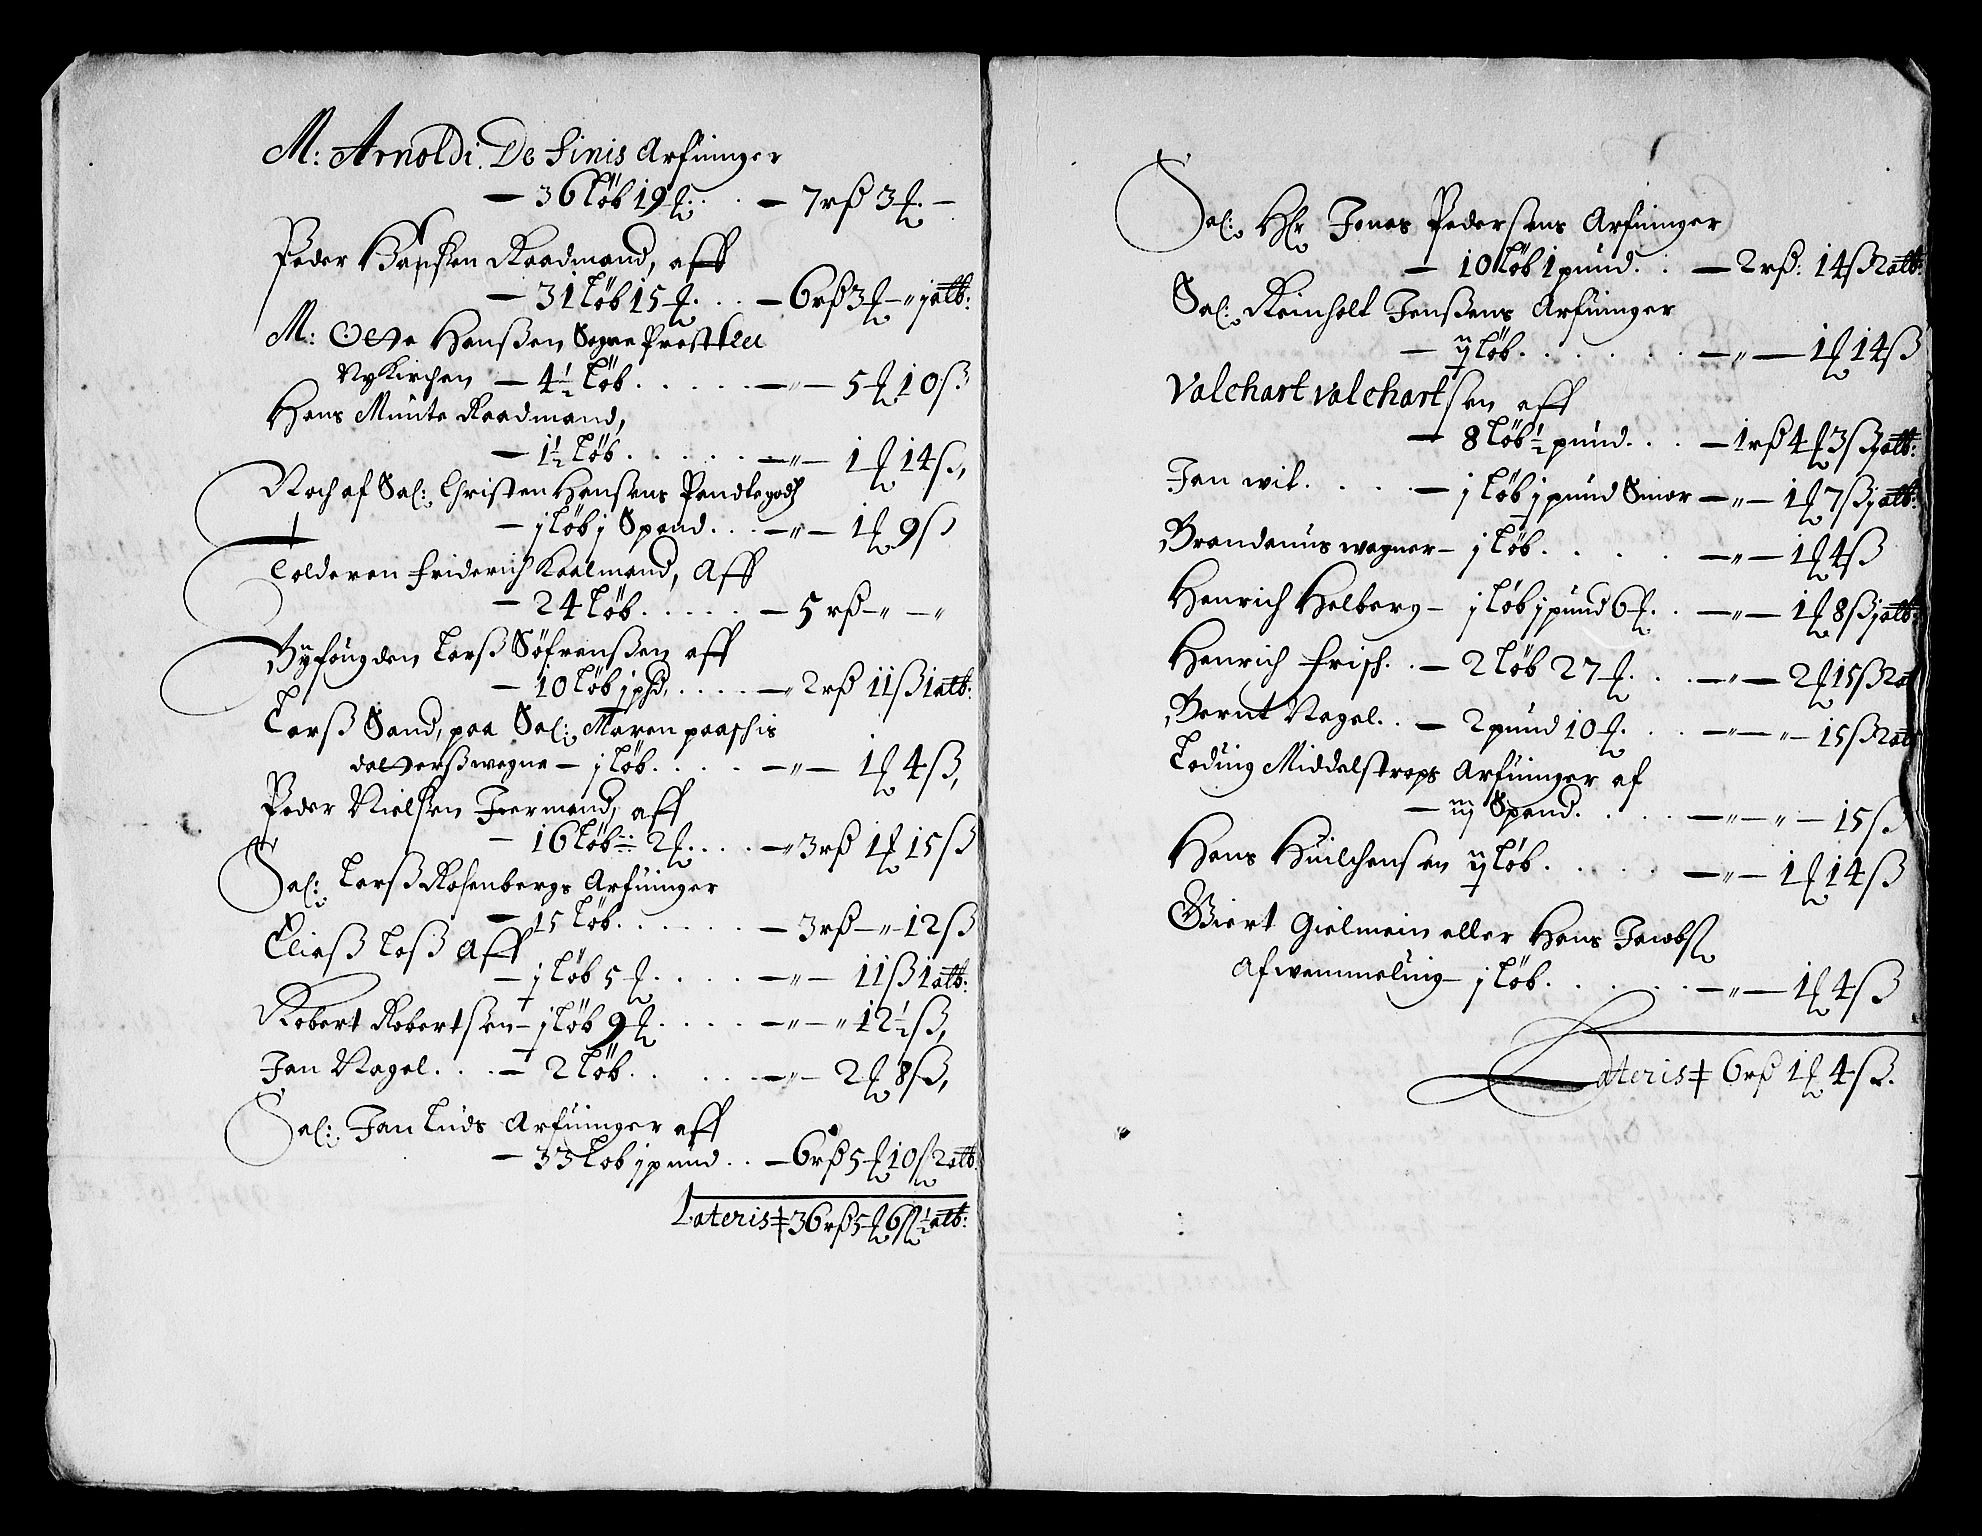 M: Arnoldi De Finis Arfuinger
— 36 Löb 19 ℔. . — 7 rß 3 ℔. —
Peder Hanßen Raadmand, aff
— 31 Löb 15 ℔. . . — 6 rß 3 ℔ — " j alb:
M: Otte Hansßen Sogne Prest till
Nykirchen — 4½ Löb . . . . . — " — 5 ℔ 10 ß
Hans Munte Raadmand,
— 1½ Löb . . . . . — " — 1 ℔ 14 ß,
Noch af Sal: Christen Hansens Pandtegodß
— j Löb j Spand . . . — " — 1 ℔ 9 ß
Tolderen Friderich Kaalmand, Aff
— 24 Löb . . . . . — 5 rß — " — "
Byfougden Larß Söfrensßen aff
— 10 Löb j pd, . . . . — " 2 rß 11 ß 1 alb:
Larß Sand, paa Sal: Maren paaschis
datters wegne — j Löb . . . . . — " — 1 ℔ 4 ß,
Peder Nielsen Foermand, aff
— 16 Löb — 2 ℔ . . . . — " 3 rß 1 ℔ 15 ß
Sal: Larß Rosenbergs Arfuinger
— 15 Löb . . . . . . — 3 rß — " — 12 ß
Eliaß Loß Aff
— j Löb 5 ℔ . . . . — " — 11 ß 1 alb:
Robert Robertsen — j Löb 9 ℔ . . . . — " — " 12½ ß,
Jan Nagel . . . — 2 Löb . . . . — " — 2 ℔ 8 ß,
Sal: Jan Luds Arfuinger aff
— 33 Löb j pund . . — 6 rß 5 ℔ 10 ß 2 alb:
Lateris ‡ 36 rß 5 ℔ 6 ß ½ alb:
Sal: Hr Jonas Pedersens Arfuinger
— 10 Löb 1 pund . . — 2 rß: 14 ß 2 alb:
Sal: Reinholt Jensßens Arfuinger
— ij Löb . . . . . . — " — 1 ℔ 14 ß
Valchart Valchartsen aff
— 8 Löb ½ pund . . . — 1 rß 4 ℔ 3 ß j alb:
Jan wil . . . . — j Löb j pund Smør — " — 1 ℔ 7 ß j alb:
Brandanus wagner — j Löb . . . . . — " — 1 ℔ 4 ß
Henrich Helberg — j Löb j pund 6 ℔ . . — " — 1 ℔ 8 ß j alb:
Henrich Frisch . . — 2 Löb 27 ℔ . . . — " — 2 ℔ 15 ß 2 al
Bernt Nagel . . — 2 pund 10 ℔ . . . — " — " — 15 ß 2 alb
Loduig Middelstrops Arfuinger af
— iij Spand . . . . . — " — " — 15 ß
Hans Huilchensen ij Löb . . . . . — " — 1 ℔ 14 ß
Giert Gielmein eller Hans Jacobß
Afwemmeling — j Löb . . . . . . — " — 1 ℔ 4 ß
Lateris ‡ 6 rß 1 ℔ 4 ß.